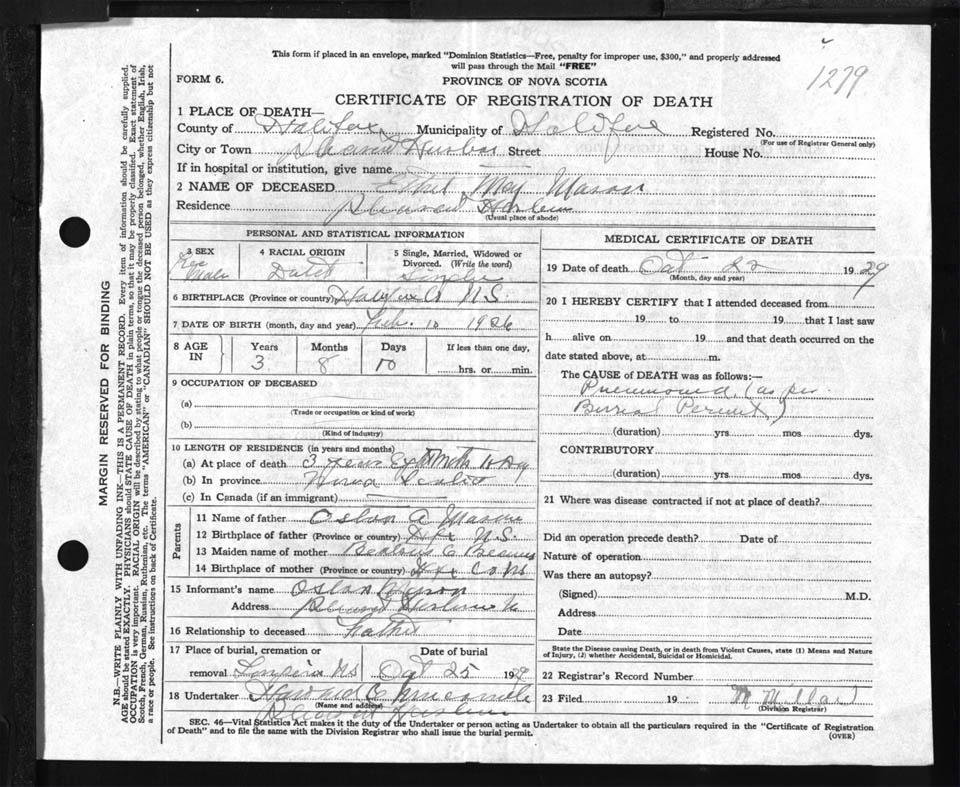 This form if placed in an envelope, marked "Dominion Statistics—Free, penalty for improper use, $300," and properly addressed
will pass through the Mail "FREE"
1279
FORM 6.
PROVINCE OF NOVA SCOTIA
CERTIFICATE OF REGISTRATION OF DEATH
1 PLACE OF DEATH—
County of Halifax Municipality of Halifax Registered No.
(For use of Registrar General only)
City or Town Street House No.
If in hospital or institution, give name
2 NAME OF DECEASED Ethel May Mason
Residence
(Usual place of abode)
PERSONAL AND STATISTICAL INFORMATION
3 SEX Fe male
4 RACIAL ORIGIN Dutch
5 Single, Married, Widowed or Divorced. (Write the word) Single
6 BIRTHPLACE (Province or country) Halifax Co N.S.
7 DATE OF BIRTH (month, day and year) Feb. 10 1926
8 AGE IN Years 3 Months 8 Days 10 If less than one day, hrs. or min.
9 OCCUPATION OF DECEASED
(a)
(Trade or occupation or kind of work)
(b)
(Kind of Industry)
10 LENGTH OF RESIDENCE (in years and months)
(a) At place of death 3 years 8 Mths 10 Day
(b) In province Nova Scotia
(c) In Canada (if an immigrant)
Parents
11 Name of father A Mason
12 Birthplace of father (Province or country) Hfx N.S.
13 Maiden name of mother
14 Birthplace of mother (Province or country) Hfx Co NS
15 Informant's name Mason
Address
16 Relationship to deceased Father
17 Place of burial, cremation or removal NS
Date of burial Oct 25 1929
18 Undertaker Howard
(Name and address)
MEDICAL CERTIFICATE OF DEATH
19 Date of death Oct 22 1929
(Month, day and year)
20 I HEREBY CERTIFY that I attended deceased from
19 to 19 that I last saw
h alive on 19 and that death occurred on the
date stated above, at m.
The CAUSE of DEATH was as follows:—
Pneumonia (as per
Burial Permit)
(duration) yrs. mos. dys.
CONTRIBUTORY
(duration) yrs. mos. dys.
21 Where was disease contracted if not at place of death?
Did an operation precede death? Date of
Nature of operation
Was there an autopsy?
(Signed) M.D.
Address
Date
State the Disease causing Death, or in death from Violent Causes, state (1) Means and Nature
of Injury, (2) whether Accidental, Suicidal or Homicidal.
22 Registrar's Record Number
23 Filed 19
(Division Registrar)
SEC. 46—Vital Statistics Act makes it the duty of the Undertaker or person acting as Undertaker to obtain all the particulars required in the "Certificate of Registration
of Death" and to file the same with the Division Registrar who shall issue the burial permit.
(OVER)
MARGIN RESERVED FOR BINDING
N.B.—WRITE PLAINLY WITH UNFADING INK—THIS IS A PERMANENT RECORD. Every item of information should be carefully supplied.
AGE should be stated EXACTLY. PHYSICIANS should STATE CAUSE OF DEATH in plain terms, so that it may be properly classified. Exact statement of
OCCUPATION is very important. RACIAL ORIGIN will be described by stating to what people or tongue the deceased person belonged, whether English, Irish,
Scotch, French, German, Russian, Ruthenian, etc. The terms "AMERICAN" or "CANADIAN" SHOULD NOT BE USED as they express citizenship but not
a race or people. See instructions on back of Certificate.